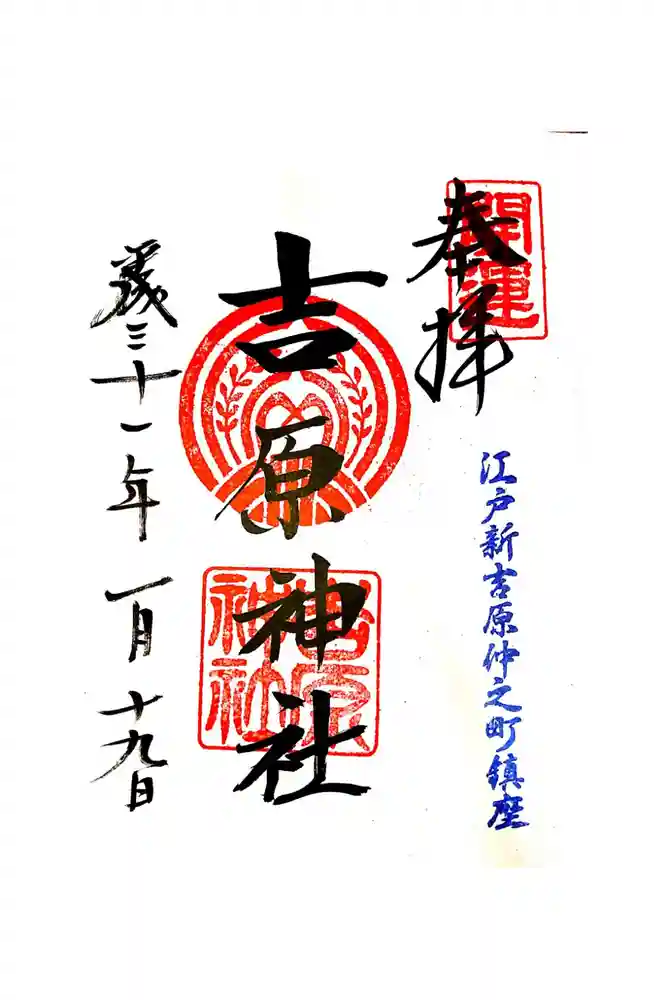 開運
奉拝
江戸新吉原仲之町鎮座
吉原神社
吉原神社
平成三十一年一月十九日